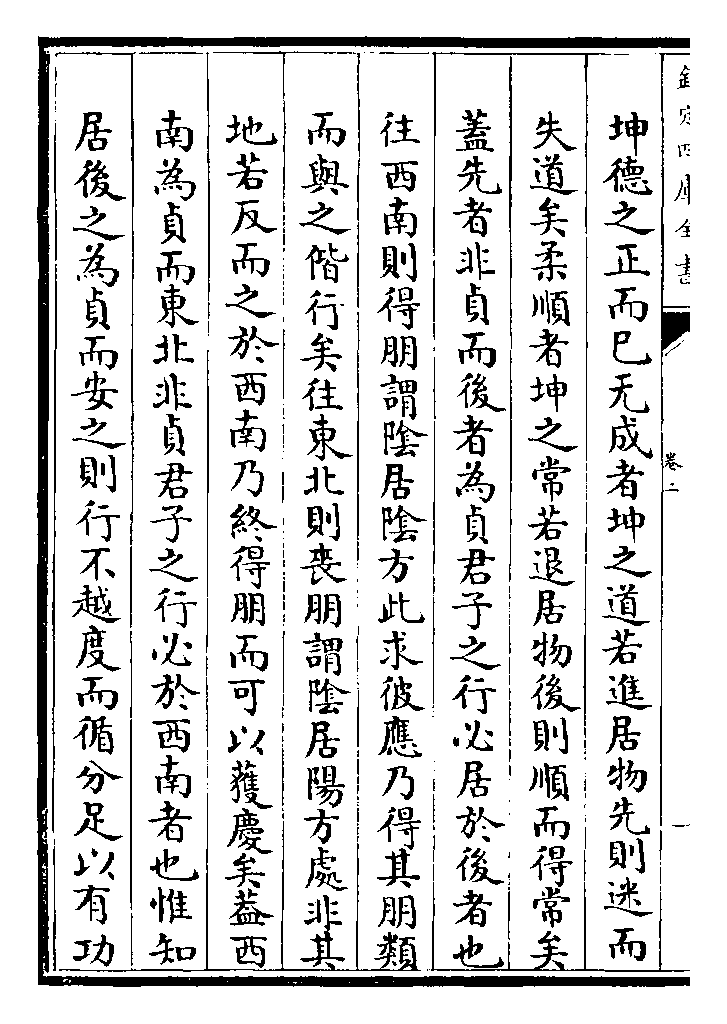 欽定四庫全書
卷二
坤德之正而巳无成者坤之道若進居物先則迷而
失道矣柔順者坤之常若退居物後則順而得常矣
蓋先者非貞而後者為貞君子之行必居於後者也
往西南則得朋謂陰居陰方此求彼應乃得其朋類
而與之偕行矣往東北則喪朋謂陰居陽方處非其
地若反而之於西南乃終得朋而可以獲慶矣葢西
南為貞而東北非貞君子之行必於西南者也惟知
居後之為貞而安之則行不越度而循分足以有功